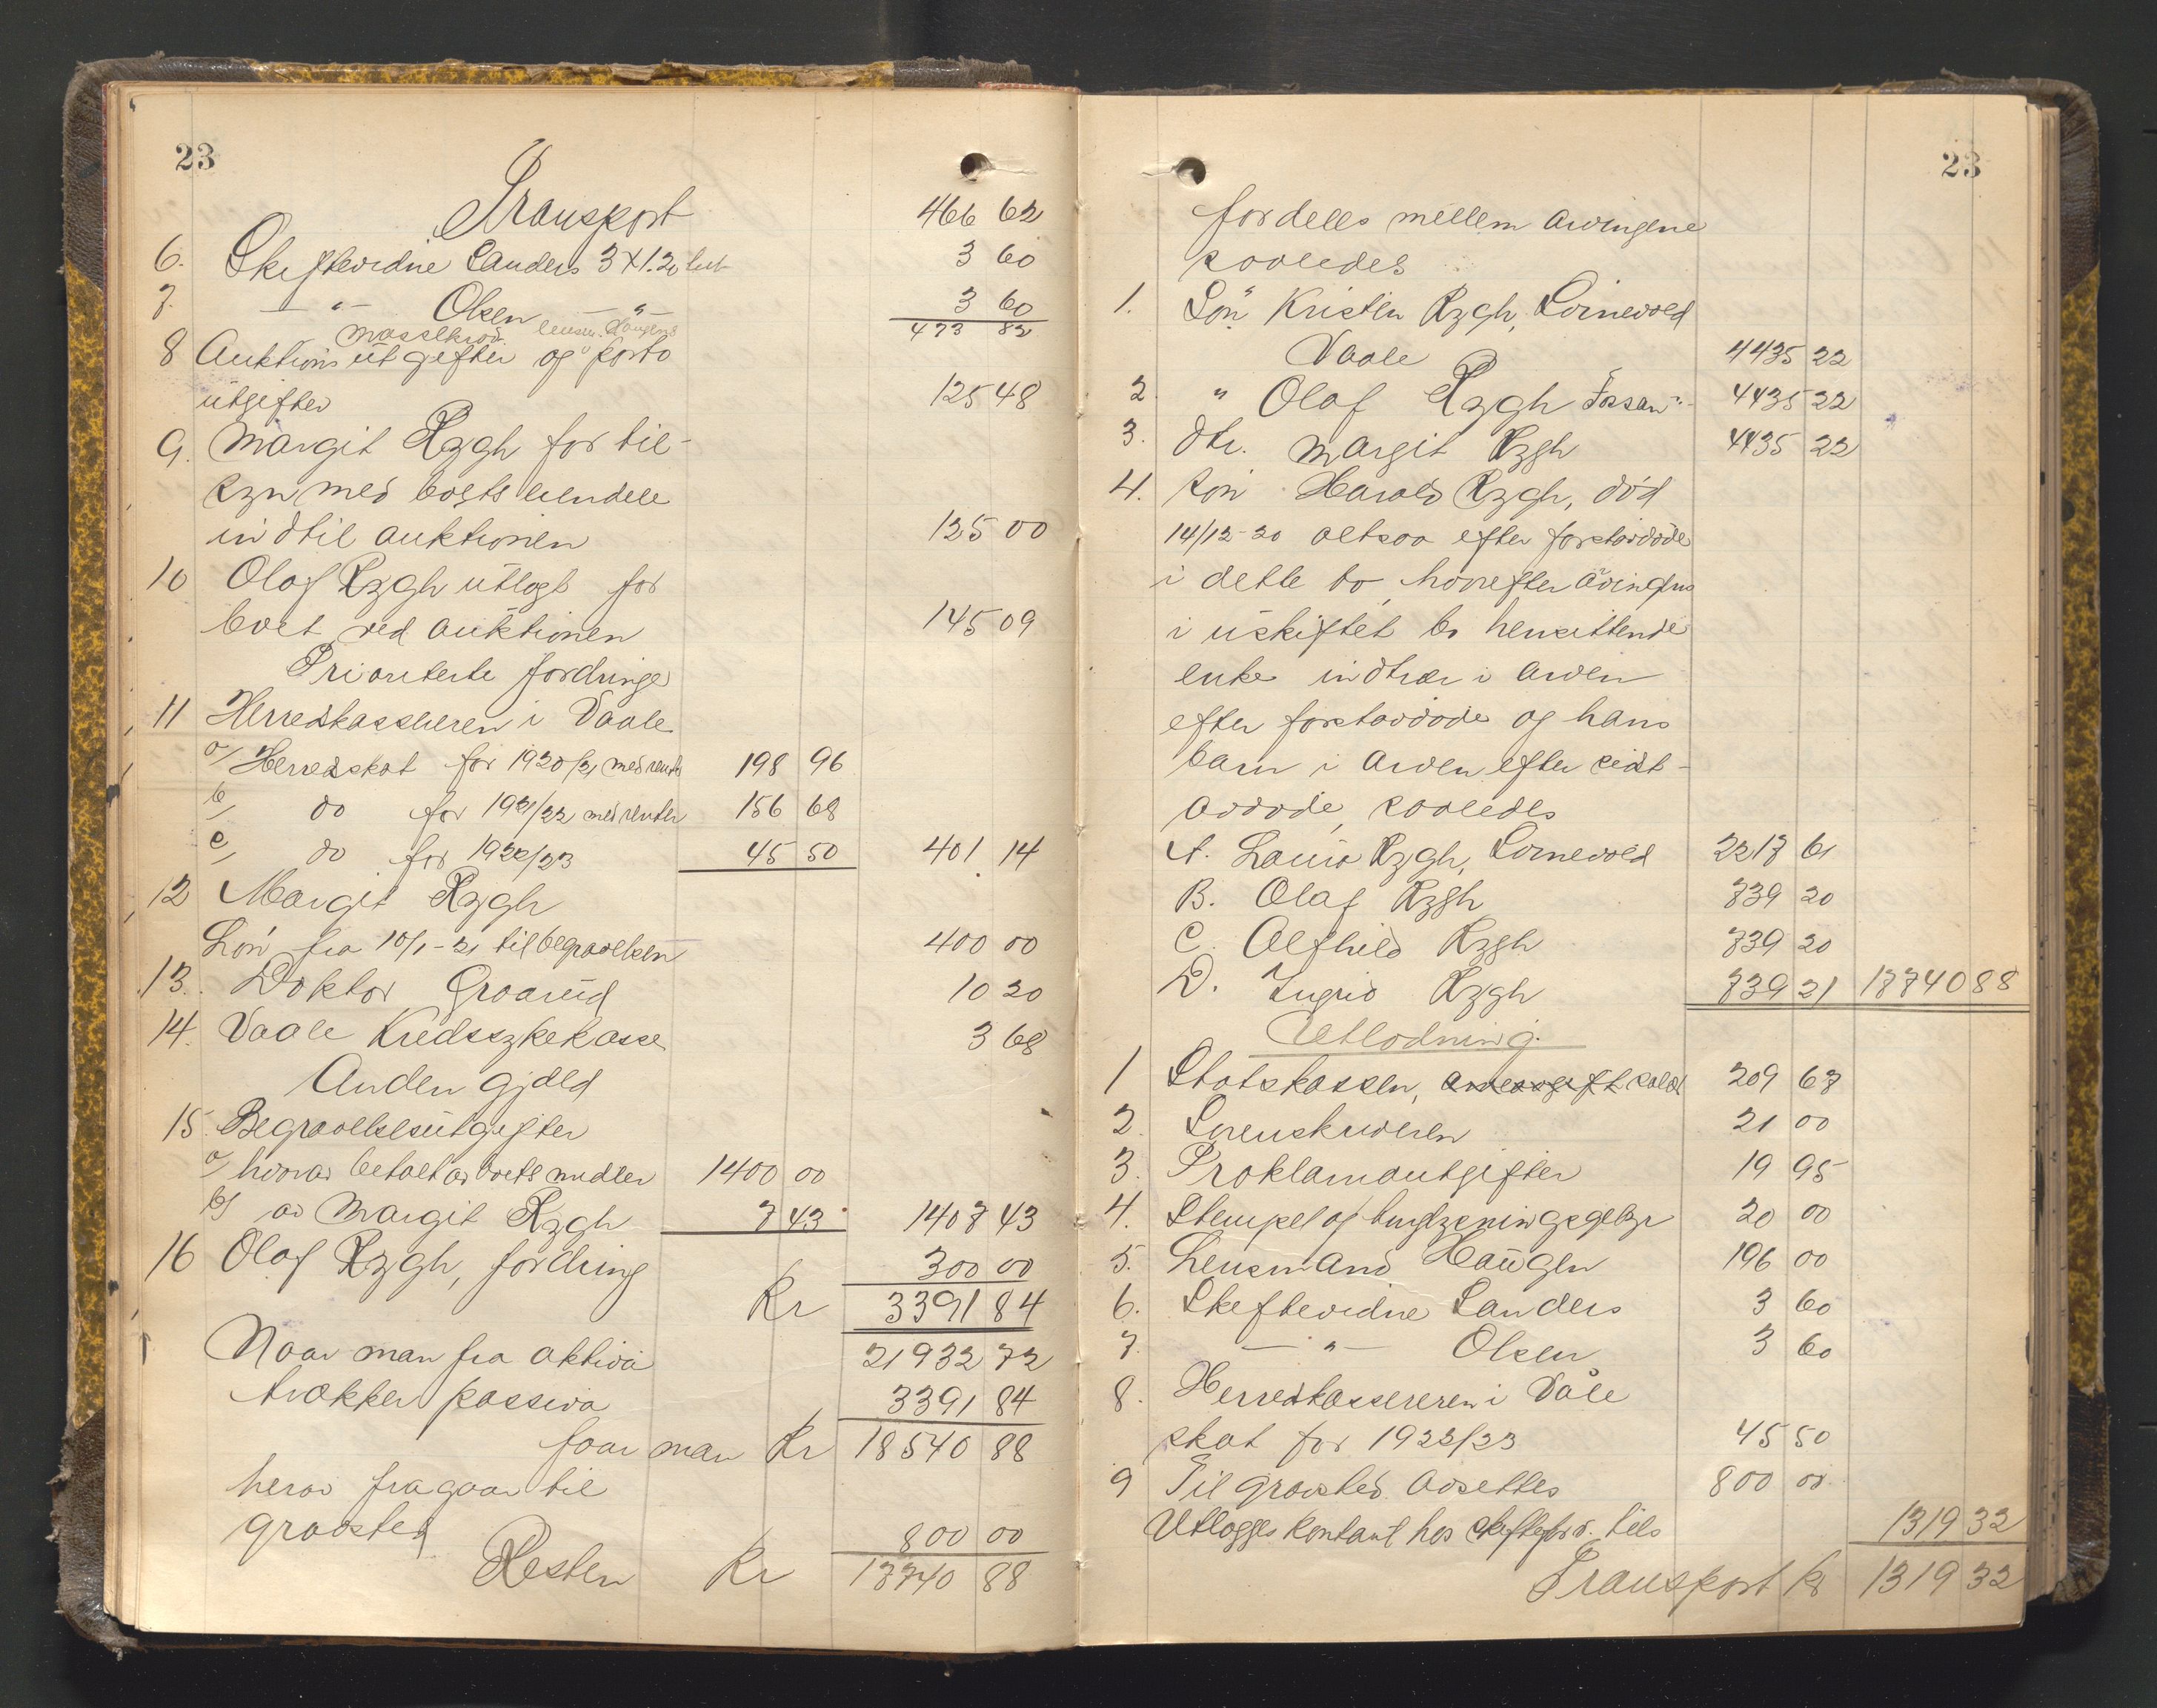 23
Transport 466 62
6. Skiftevidne Landers 3 x 1.20 3 60
7. — " — Olsen — " — 3 60
473 82
8 Auktionsutgifter og porto
utgifter 125 48
9. Margit Rygh for til-
syn med boets eiendele
indtil auktionen 125 00
10 Olaf Rygh utlagt for
boet ved auktionen 145 09
Prioriterte fordringer
11 Herredskassereren i Vaale
a/ Herredskat for 1920/21 med renter 198 96
b/ do for 1921/22 med renter 156 68
c/ do for 1922/23 45 50 401 14
12 Margit Rygh
Løn fra 10/1-21 til begravelsen 400 00
13. Doktor Graarud 10 20
14. Vaale Kredssykekasse 3 68
Anden gjæld
15. Begravelsesutgifter
a/ hvorav betalt av boets midler 1400 00
b/ av Margit Rygh 7 43 1407 43
16 Olaf Rygh, fordring 300 00
Kr 3391 84
Naar man fra aktiva 21932 72
trækker passiva 3391 84
faar man Kr 18540 88
herav fragaar til
gravsted 800 00
Resten Kr 17740 88
23
fordeles mellem arvingene
saaledes
1. Søn Kristen Rygh, Lørnevold
Vaale 4435 22
2. " Olaf Rygh 4435 22
3. dtr. Margit Rygh 4435 22
4. søn Harald Rygh, død
14/12-20 altsaa efter førstavdøde
i dette bo, hvorefter
i uskiftet bo hensittende
enke indtrær i arven
efter førstavdøde og hans
barn i arven efter sidst-
avdøde, saaledes
A. Laura Rygh, Lørnevold 2217 61
B. Olaf Rygh 739 20
C. Alfhild Rygh 739 20
D. Ingrid Rygh 739 21 17740 88
Utlodning.
1 Statskassen, arveavgift 209 67
2. Sorenskriveren 21 00
3. Proklamautgifter 19 95
4. Stempel og tinglysningsgebyr 20 00
5. Lensmand Haugen 196 00
6. Skiftevidne Landers 3 60
7. — " — Olsen 3 60
8. Herredskassereren i Våle
skat for 1922/23 45 50
9 Til gravsted avsettes 800 00
Utlægges kontant hos skifteforv. 1319 32
Transport kr 1319 32